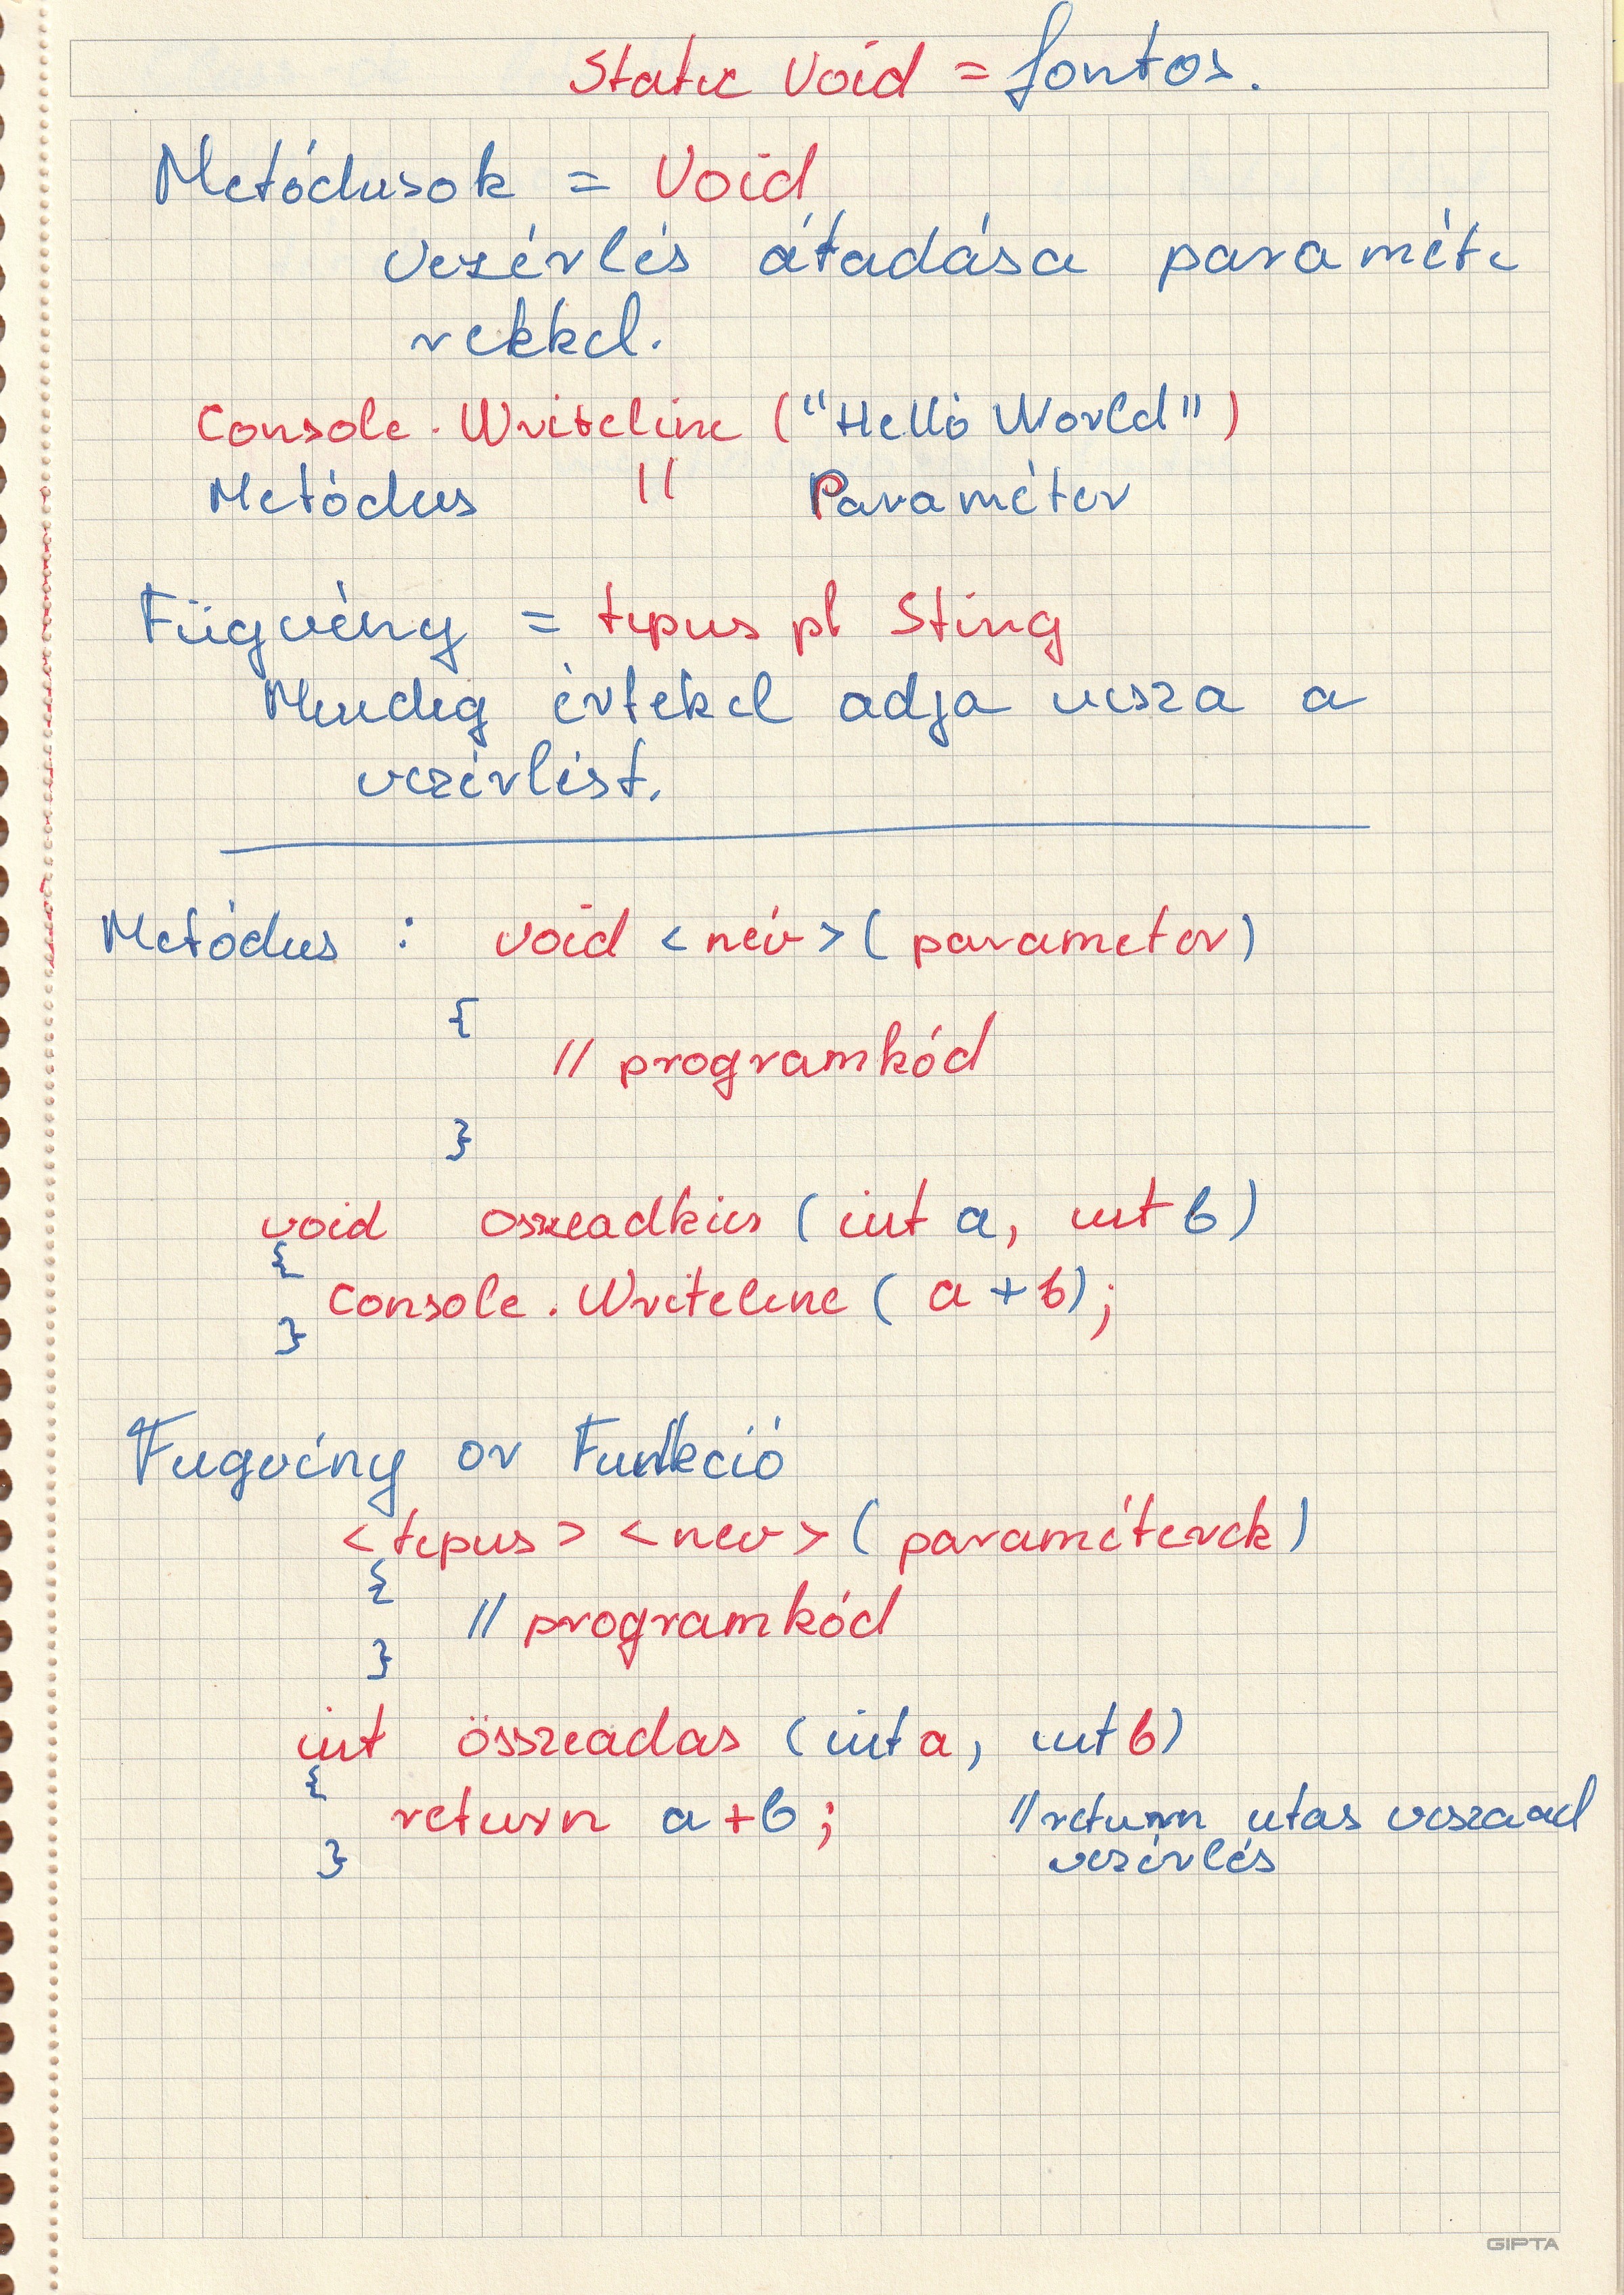 Static Void = fontos.
Metódusok = Void
vezérlés átadása paraméte
rekkel.
Console.Writeline ("Helló World")
Metódus || Paraméter
Fügvény = tipus pl Sting
Mindig értékel adja visza a
vezérlést.
Metódus : void <név>(parameter)
{
// programkód
}
void osszeadkiir (int a, int b)
{
Console.Writeline (a+b);
}
Fugvény or Funkció
<tipus> <nev> (paraméterek)
{
// programkód
}
int összeadas (int a, int b)
{
return a+b; // return utas viszaad
} vezérlés
GIPTA